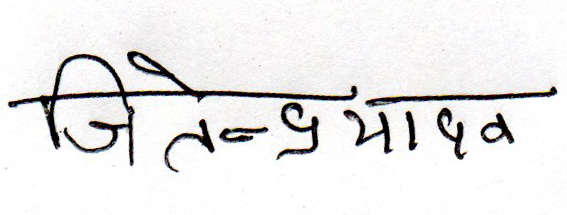 जितेन्द्र यादव